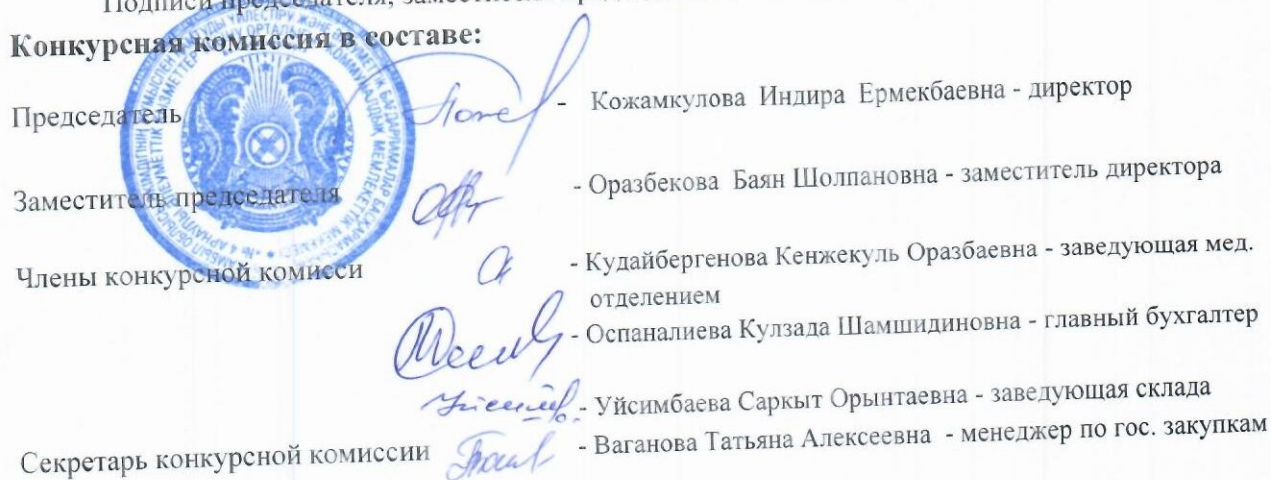 Подписи председателя,
Конкурсная комиссия в составе:
Председатель - Кожамкулова Индира Ермекбаевна - директор
Заместитель председателя - Оразбекова Баян Шолпановна - заместитель директора
Члены конкурсной комисси - Кудайбергенова Кенжекуль Оразбаевна - заведующая мед.
отделением
- Оспаналиева Кулзада Шамшидиновна - главный бухгалтер
- Уйсимбаева Саркыт Орынтаевна - заведующая склада
Секретарь конкурсной комиссии - Ваганова Татьяна Алексеевна - менеджер по гос. закупкам